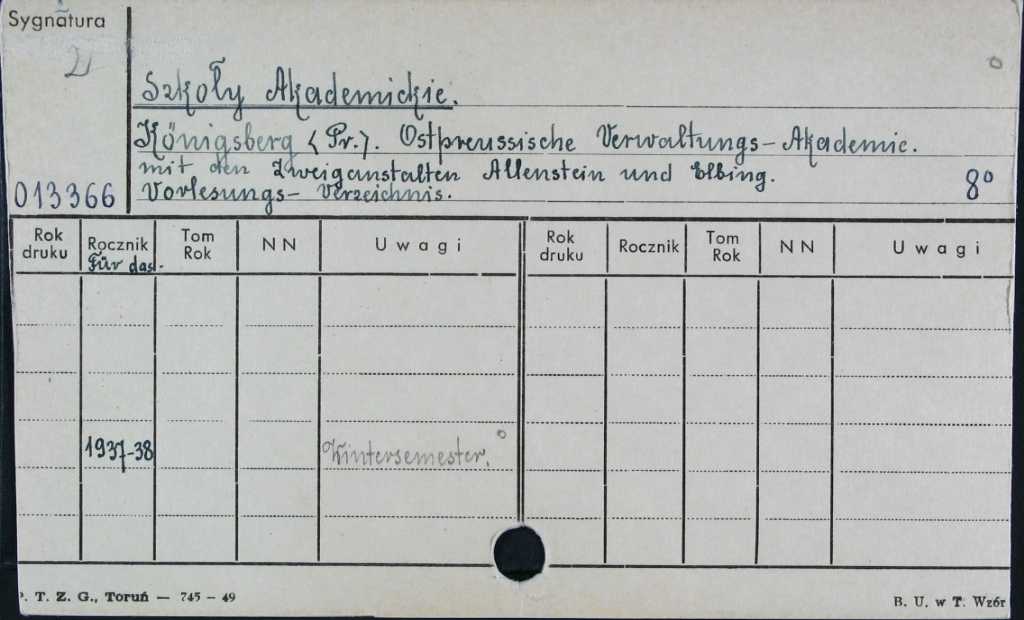 Sygnatura
Szkoły Akademickie.
Königsberg (Pr.). Ostpreussische Verwaltungs-Akademie.
mit den Zweiganstalten Allenstein und Elbing.
8°
013366
Vorlesungs-Verzeichnis.
Rok druku Rocznik Tom Rok NN Uwagi Rok druku Rocznik Tom Rok NN Uwagi
Für das.
1937-38 Wintersemester.
. T. Z. G., Toruń — 745 – 49
B. U. w T. Wzór